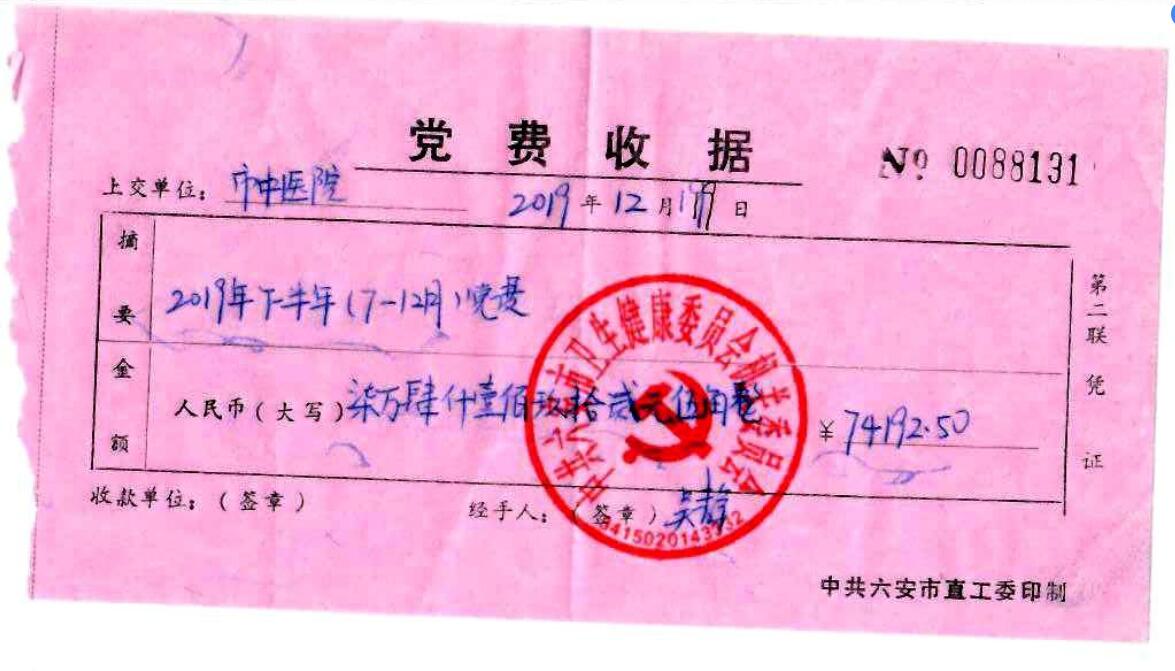 党费收据
№ 0088131
上交单位：市中医院 2019年12月19日
摘要
2019年下半年（7-12月）党费
金额
人民币（大写）柒万肆仟壹佰玖拾贰元伍角整 ￥74192.50
收款单位：（签章） 经手人：（签章）吴静
第二联 凭证
中共六安市卫生健康委员会机关委员会
中共六安市直工委印制